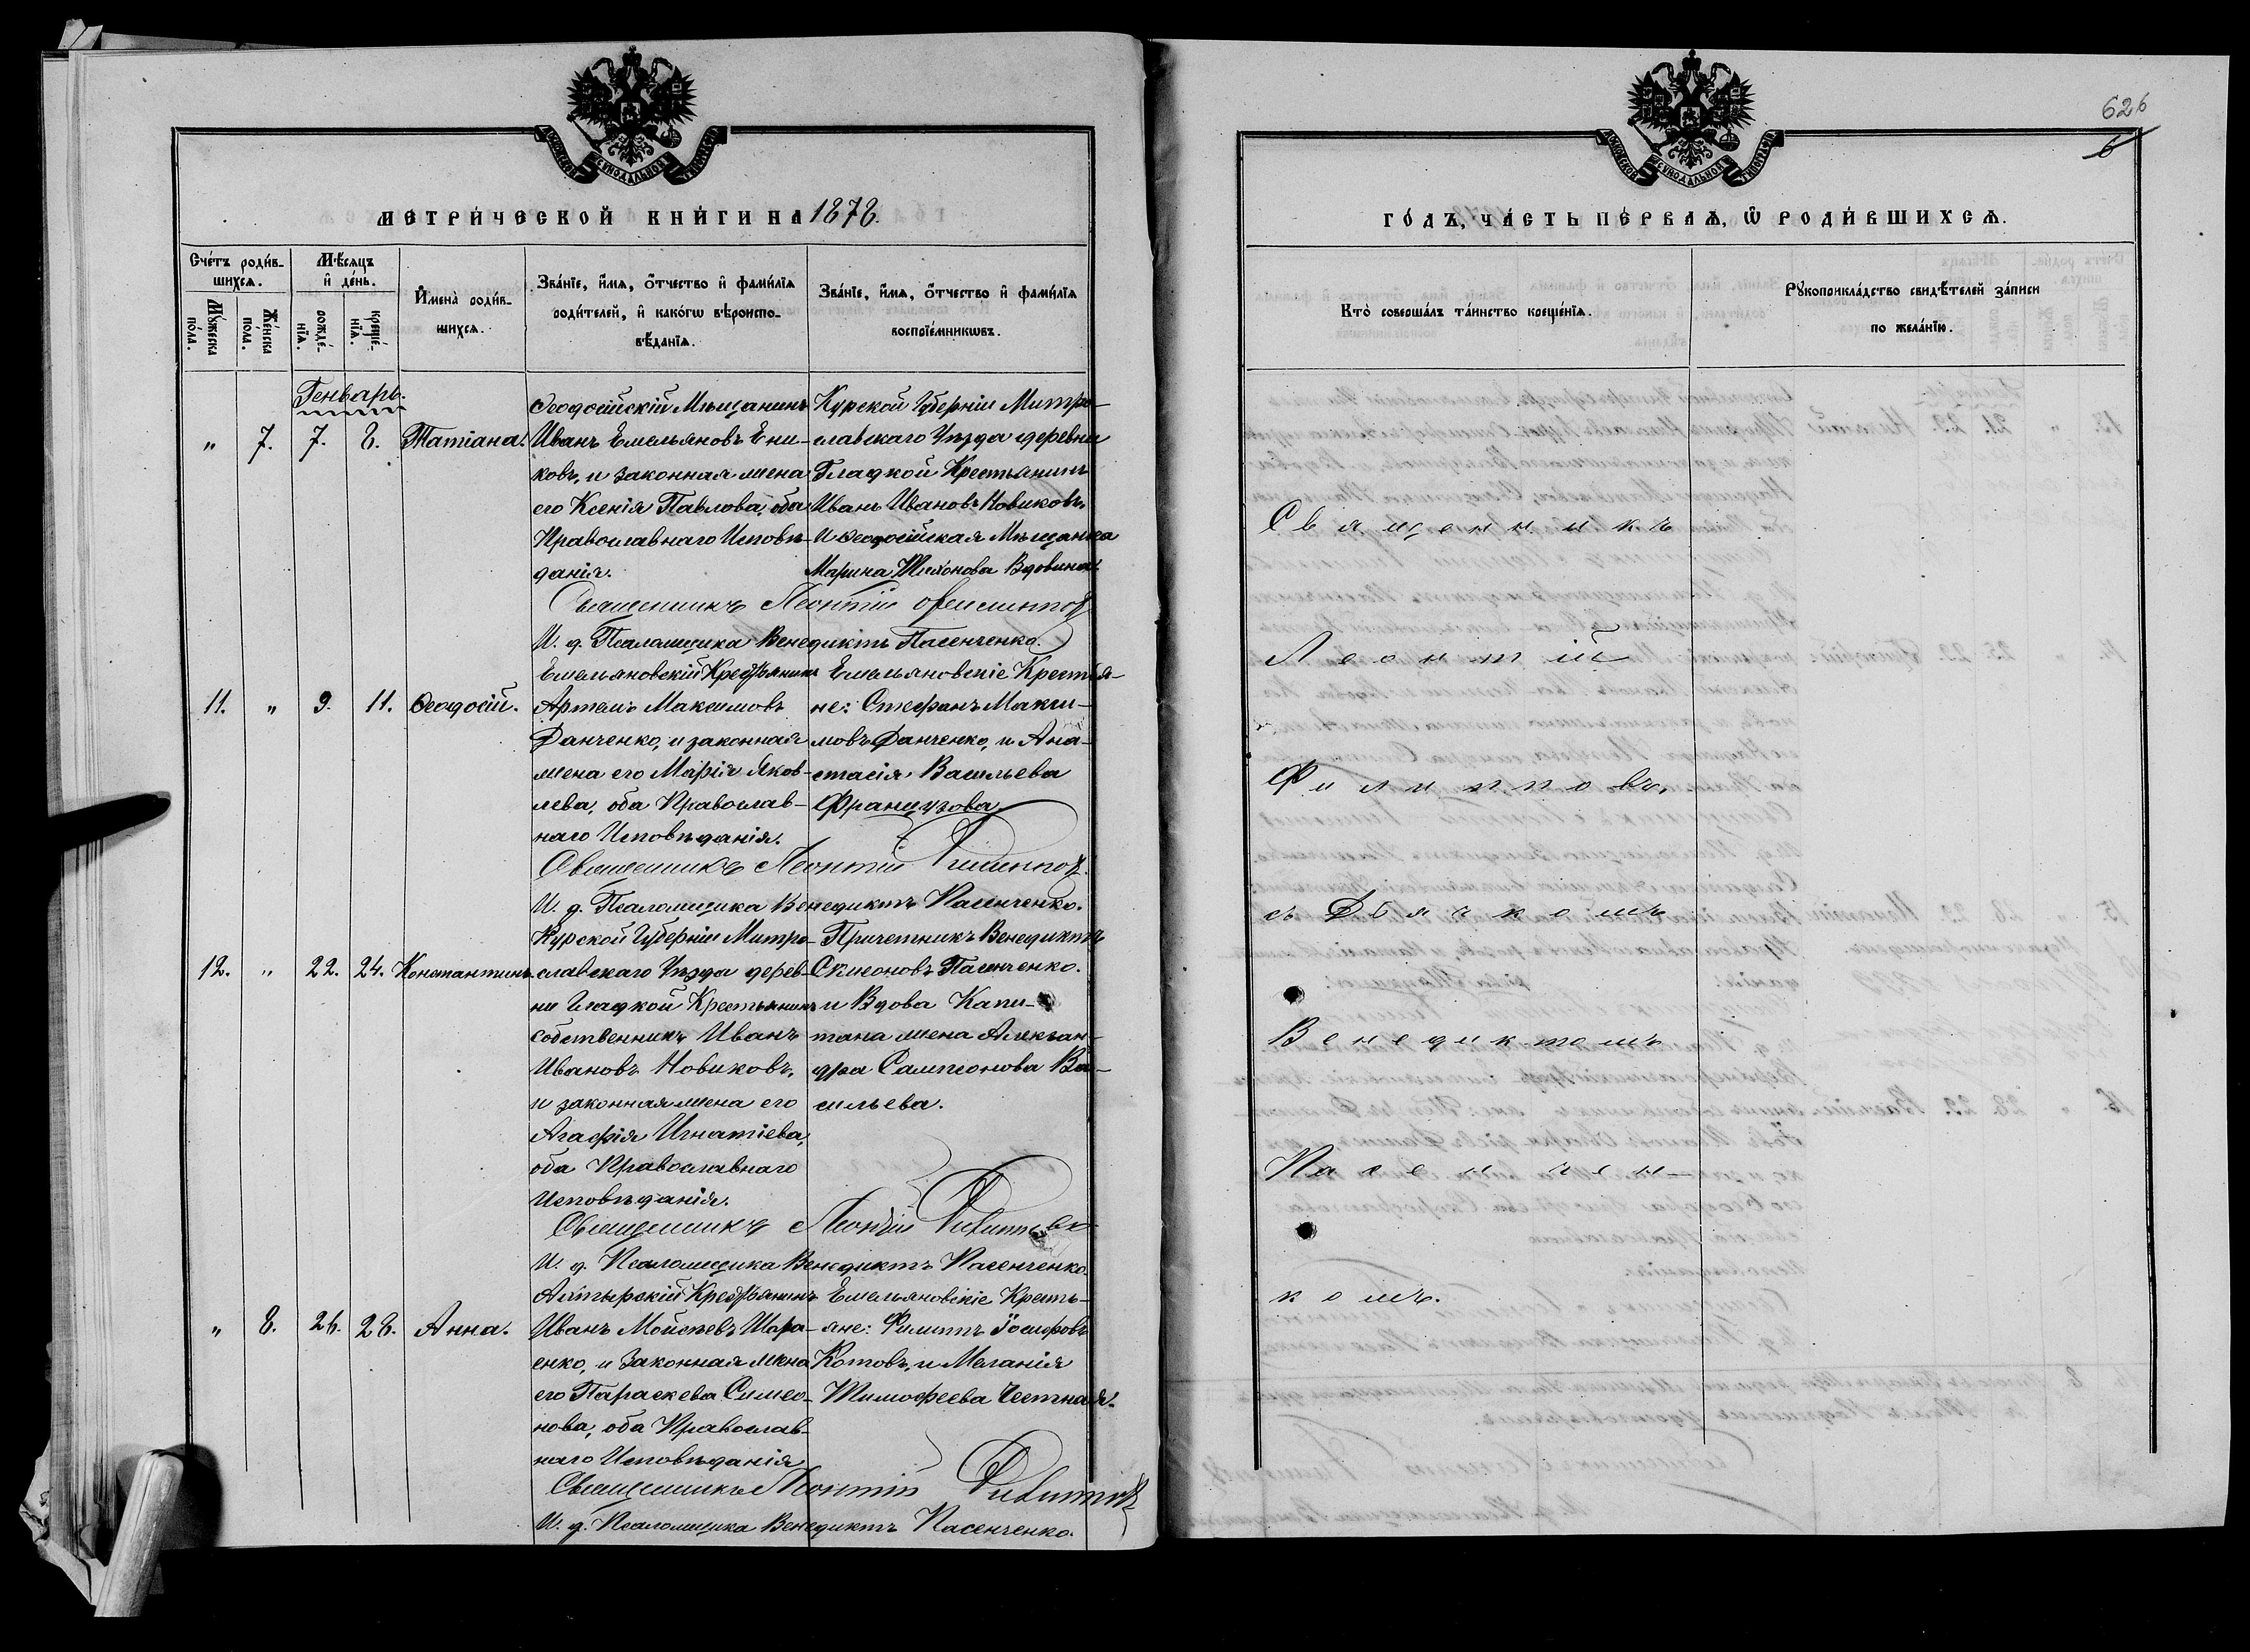 МЕТРИ́ЧЕСКОЙ КНИ́ГИ НА 1878.
Сче́тъ роди́в-
шихсѧ.
Му́жеска
по́ла.
Же́нска
по́ла.
Мѣ́сѧцъ
и҆ де́нь.
рожде́-
нїѧ.
креще́-
нїѧ.
И҆мена̀ роди́в-
шихсѧ.
Зва́нїе, и҆́мѧ, ѻ҆́тчество и҆ фами́лїѧ
роди́телей, и҆ како́гѡ вѣроиспо-
вѣ́данїѧ.
Зва́нїе, и҆́мѧ, ѻ҆́тчество и҆ фами́лїѧ
воспрїе́мникѡвъ.
Генварь.
" 7. 7. 8. Татіана.
Ѳеодосійскій Мѣщанинъ
Иванъ Емельяновъ Ени-
ковъ, и законная жена
его Ксенія Павлова, оба
Православнаго Исповѣ-
данія.
Курской Губерніи Митро-
славскаго Уѣзда деревни
Гладкой Крестьянинъ
Иванъ Ивановъ Новиковъ,
и Ѳеодосійская Мѣщанка
Марина Тихонова Вдовина.
Священникъ Леонтій Филиппов
И. д. Псаломщика Венедиктъ Пасенченко.
11. " 9. 11. Ѳеодосій.
Емельяновскій Крестьянинъ
Артемъ Максимовъ
Данченко, и законная
жена его Марія Яков-
лева, оба Православ-
наго Исповѣданія.
Емельяновскіе Крестья-
не: Стефанъ Макси-
мовъ Данченко, и Ана-
стасія Васильева
Французова
Священникъ Леонтій Филиппов
И. д. Псаломщика Венедиктъ Пасенченко.
12. " 22. 24. Константинъ.
Курской Губерніи Митро-
славскаго Уѣзда дерев-
ни Гладкой Крестьянинъ
собственникъ Иванъ
Ивановъ Новиковъ,
и законная жена его
Агафія Игнатіева,
оба Православнаго
Исповѣданія.
Причетникъ Венедиктъ
Симеоновъ Пасенченко.
и Вдова Капи-
тана жена Александра
Сампсонова Ва-
сильева.
Священникъ Леонтій Филиппов
И. д. Псаломщика Венедиктъ Пасенченко.
" 8. 26. 28. Анна.
Ахтырскій Крестьянинъ
Иванъ Моисѣевъ Шара-
енко, и законная жена
его Параскева Симео-
нова, оба Православ-
наго Исповѣданія
Емельяновскіе Кресть-
яне: Филиппъ Іосифовъ
Котовъ, и Меланія
Тимофеева Честная.
Священникъ Леонтій Филиппов
И. д. Псаломщика Венедиктъ Пасенченко.
626
6
ГО́ДЪ, ЧА́СТЬ ПЕ́РВАѦ, Ѽ РОДИ́ВШИХСѦ.
Кто̀ соверша́лъ та́инство креще́нїѧ.
Рꙋкоприкла́дство свидѣ́телей за́писи
по жела́нїю.
Священникъ
Леонтій
Филипповъ,
съ Дьячкомъ
Венедиктомъ
Пасенчен-
комъ.